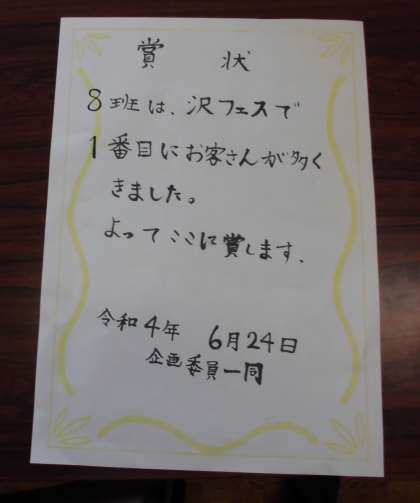 賞状
8班は、沢フェスで
1番目にお客さんが多く
きました。
よってここに賞します.
令和4年 6月24日
企画委員一同